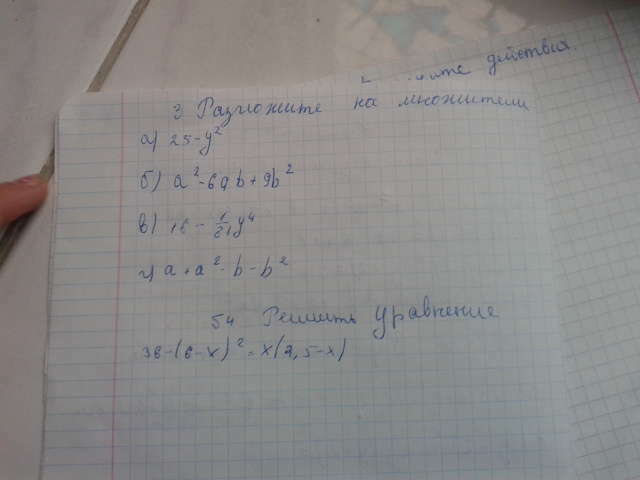 действия.
3 Разложите на множители
а) 25-y²
б) a²-6ab+9b²
в) 16 - 1/81 y⁴
г) a+a²-b-b²
54 Решить уравнение
36-(6-x)²=x(2,5-x)